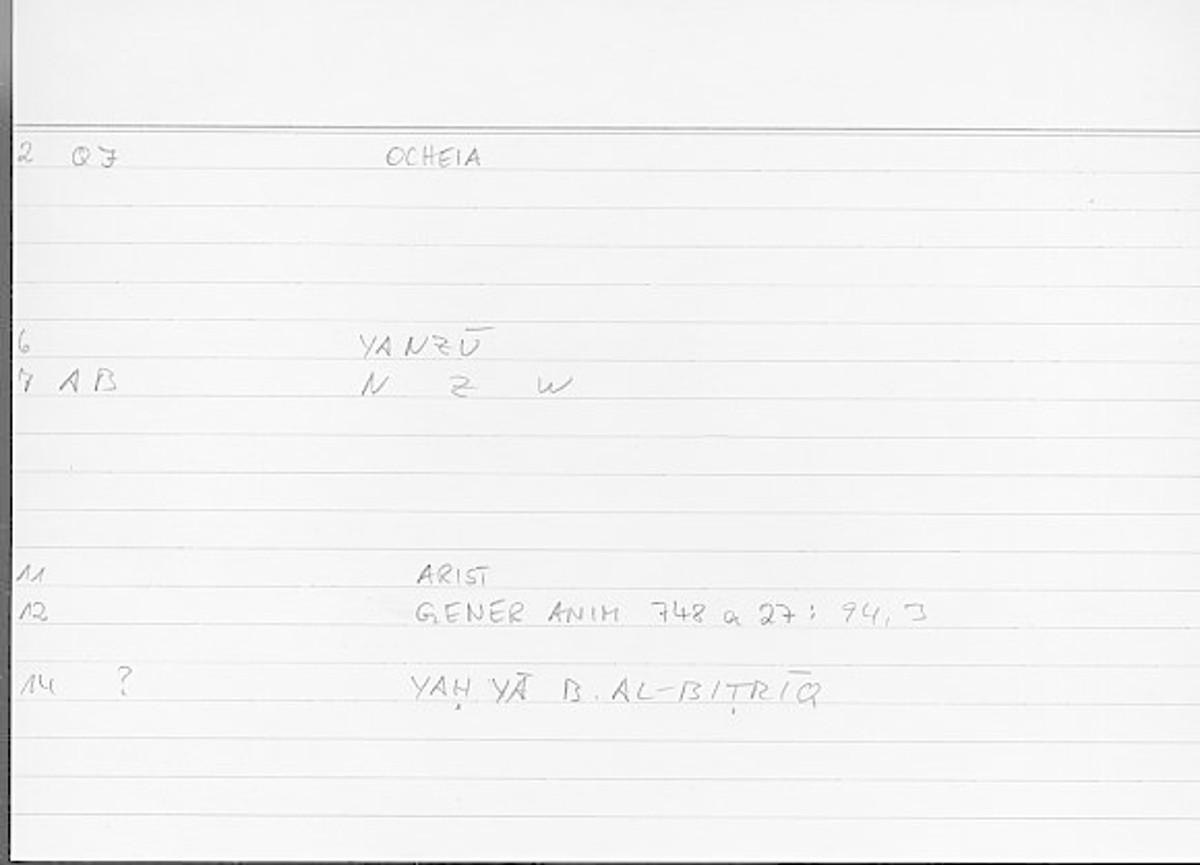 2 QJ OCHEIA
6 YANZŪ
7 AB N Z W
11 ARIST
12 GENER ANIM 748 a 27 : 94,3
14 ? YAḤYĀ B. AL-BIṬRĪQ